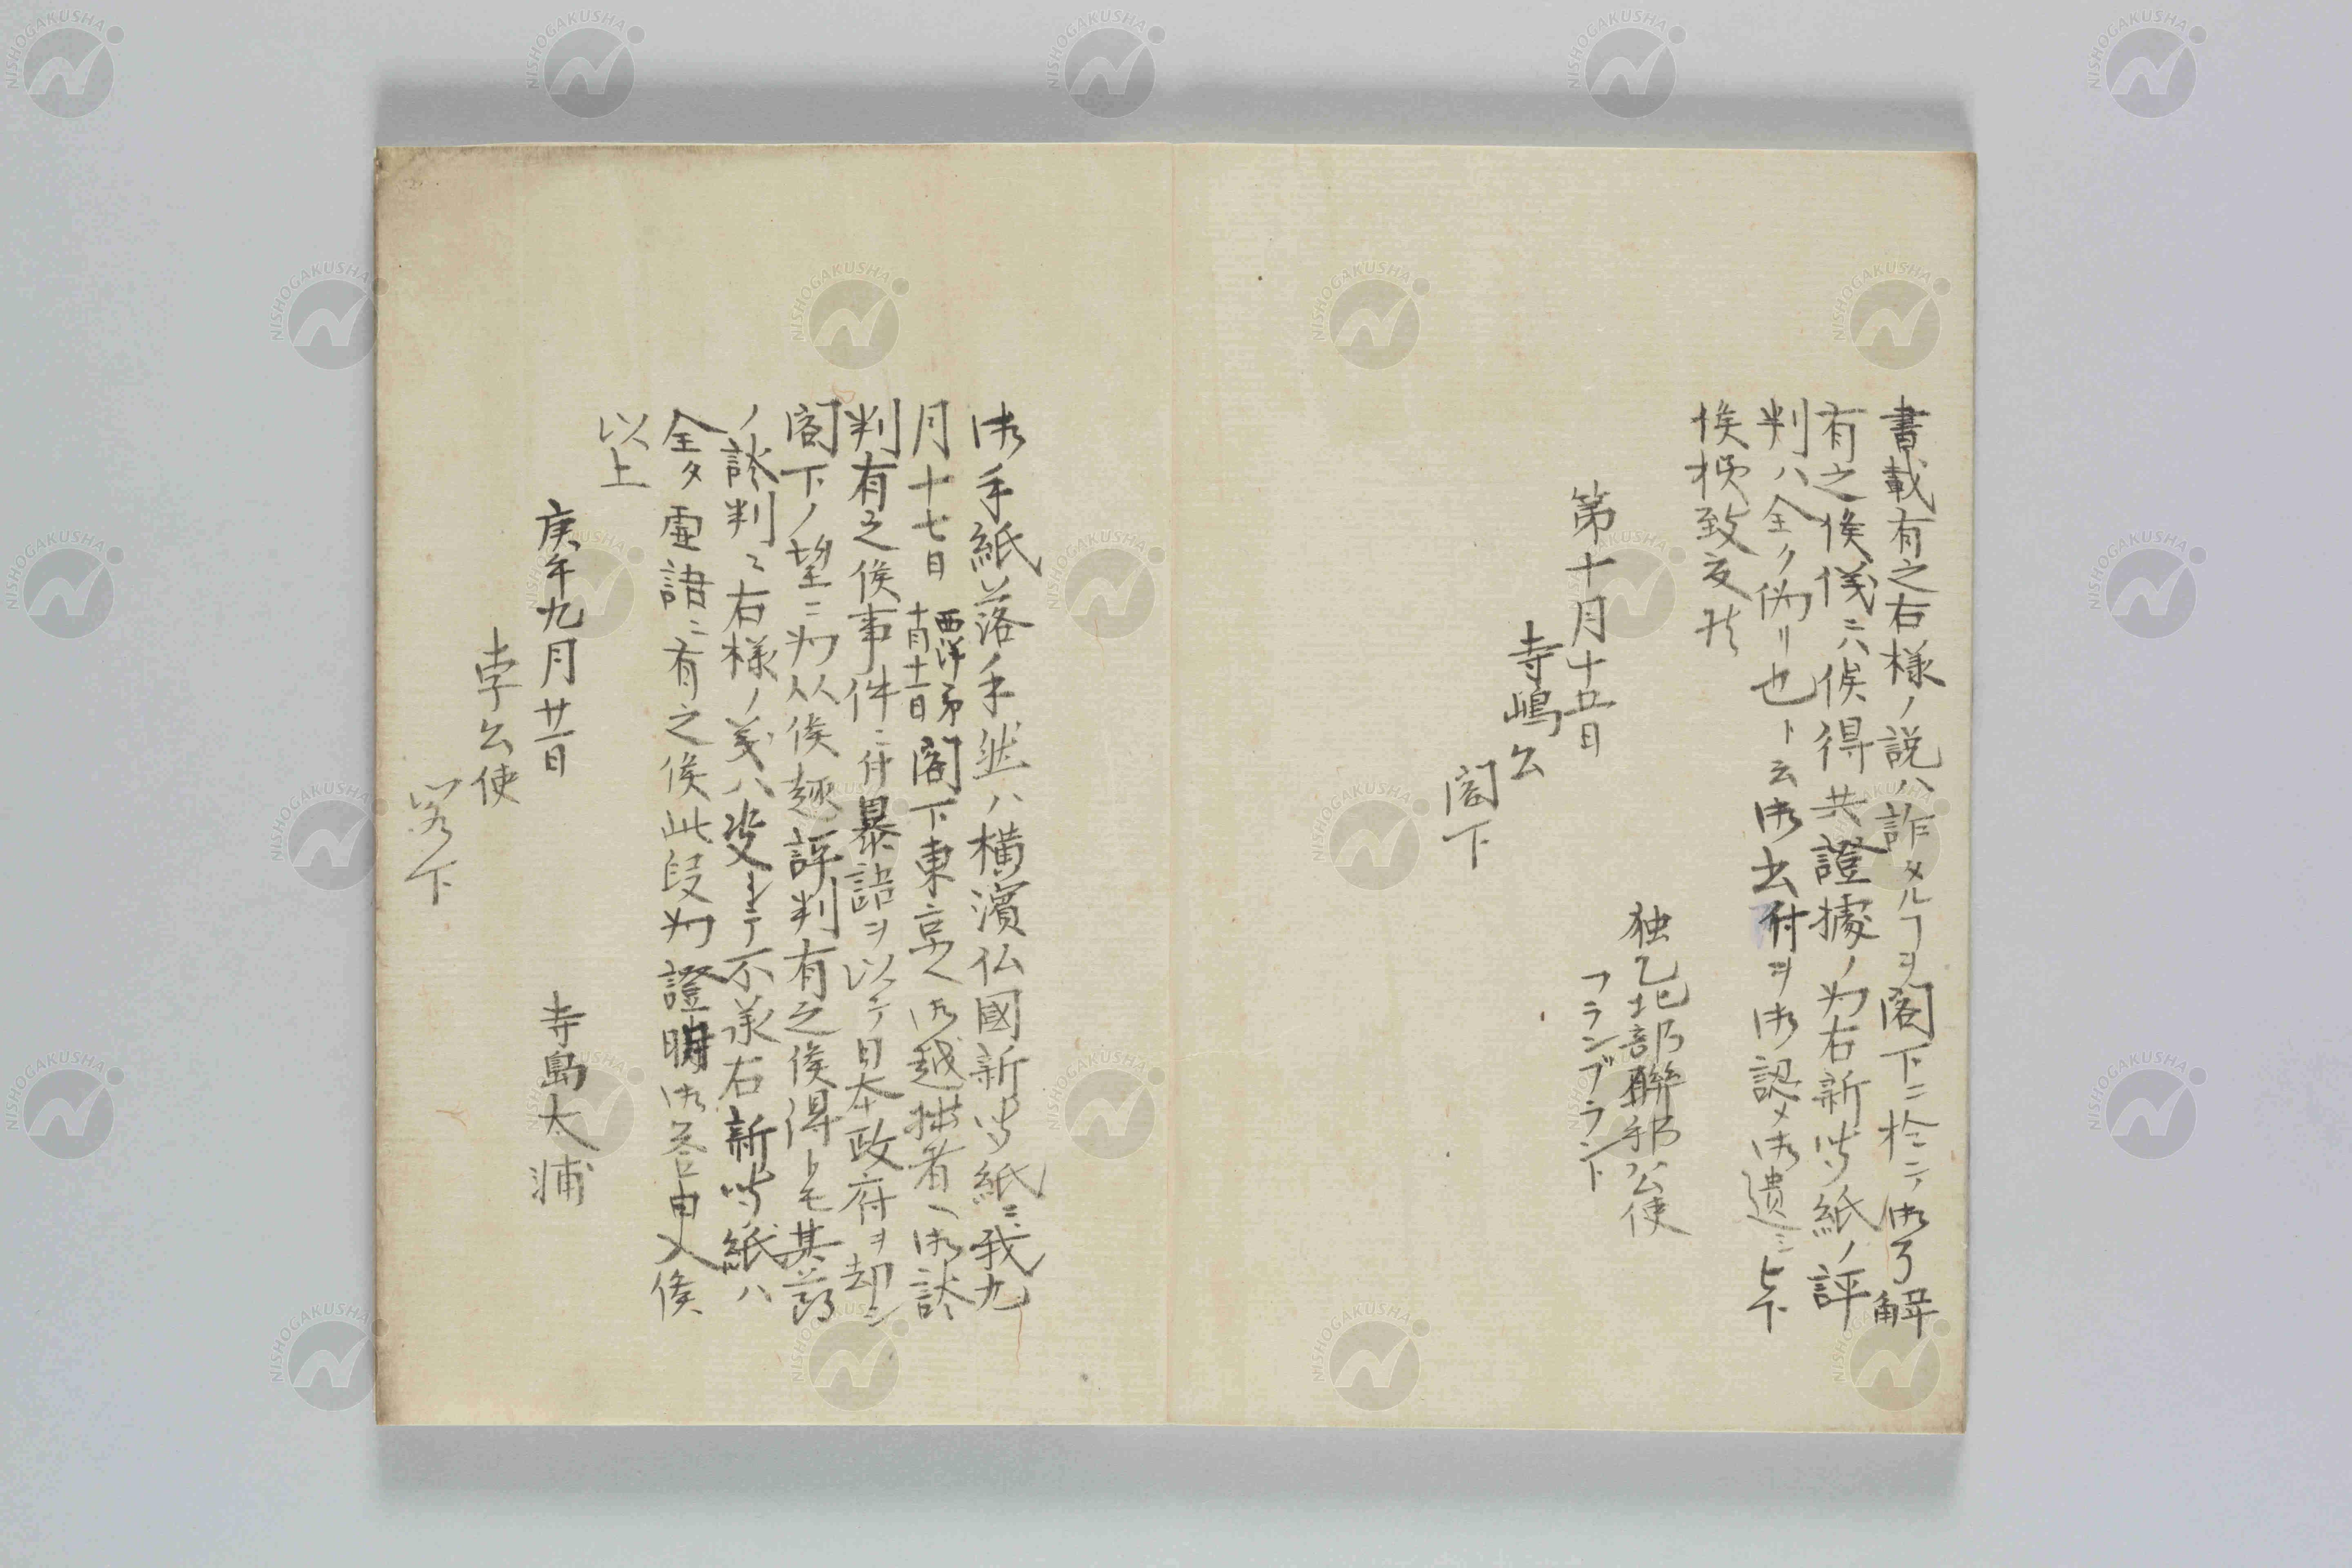 書載有之右様ノ説ハ詐タルヿヲ閣下ニ於ニテ御了解
有之候儀ニハ候得共證據ノ為右新聞紙ノ評
判ハ全ク偽リ也ト云御書付ヲ御認メ御遺シ被下
候様致度候
独乙北部聯邦公使
フランブラント
第十月十五日
寺嶋公
閣下
御手紙落手然ハ横濱仏國新聞紙ニ我九
月十七日西洋第十月十一日閣下東京ヘ御越拙者ヘ御談
判有之候事件ニ付暴語ヲ以テ日本政府ヲ却シ
閣下ノ望ニ為从候趣評判有之候得トモ其節
ノ談判ニ右様ノ義ハ决シテ不承右新聞紙ハ
全ク虚語ニ有之候此段為證明御答申入候
以上
庚午九月廿一日
寺島大輔
孛公使
閣下
NISHOGAKUSHA